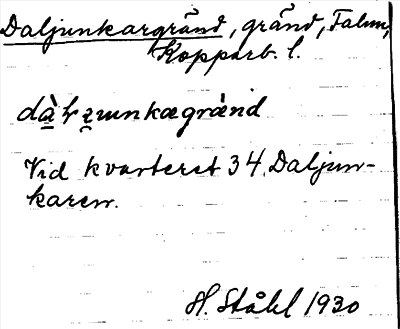 Daljunkargränd, gränd, Falun,
Kopparb. l.
Vid kvarteret 34, Daljun-
karen.
H. Ståhl 1930